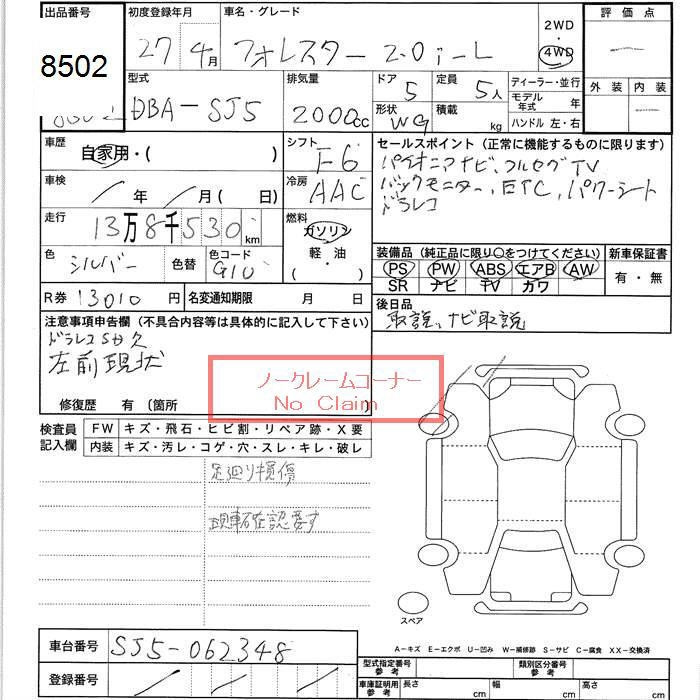 出品番号 初度登録年月 車名・グレード 2WD ・ 4WD 評価点
8502 27 4月 フォレスター 2.0i-L
型式 排気量 ドア 定員 ディーラー・並行 外装 内装
DBA-SJ5 2000cc 5 5人 モデル年式 年
形状 WG 積載 kg ハンドル 左・右
車歴 自家用・( ) シフト F6 セールスポイント (正常に機能するものに限ります)
車検 年 月(日) 冷房 AAC パイオニアナビ、フルセグTV
バックモニター、ETC、パワーシート
ドラレコ
走行 13万8千530km 燃料 ガソリン・軽油・( )
色 シルバー 色替 色コード G1U
装備品 (純正品に限り○をつけてください) 新車保証書
PS PW ABS エアB AW 有・無
SR ナビ TV カワ
R券 13010円 名変通知期限 月 日
後日品
取説、ナビ取説
注意事項申告欄 (不具合内容等は具体的に記入して下さい)
ドラレコSD欠
左前現状
ノークレームコーナー
No Claim
修復歴 有 〔箇所
検査員記入欄 FW キズ・飛石・ヒビ割・リペア跡・X要
内装 キズ・汚レ・コゲ・穴・スレ・キレ・破レ
足廻り損傷
現車確認要す
スペア
A-キズ E-エクボ U-凹み W-補修跡 S-サビ C-腐食 XX-交換済
車台番号 SJ5-062348
登録番号
型式指定番号 参考 類別区分番号 参考
車庫証明用 参考 長さ cm 幅 cm 高さ cm